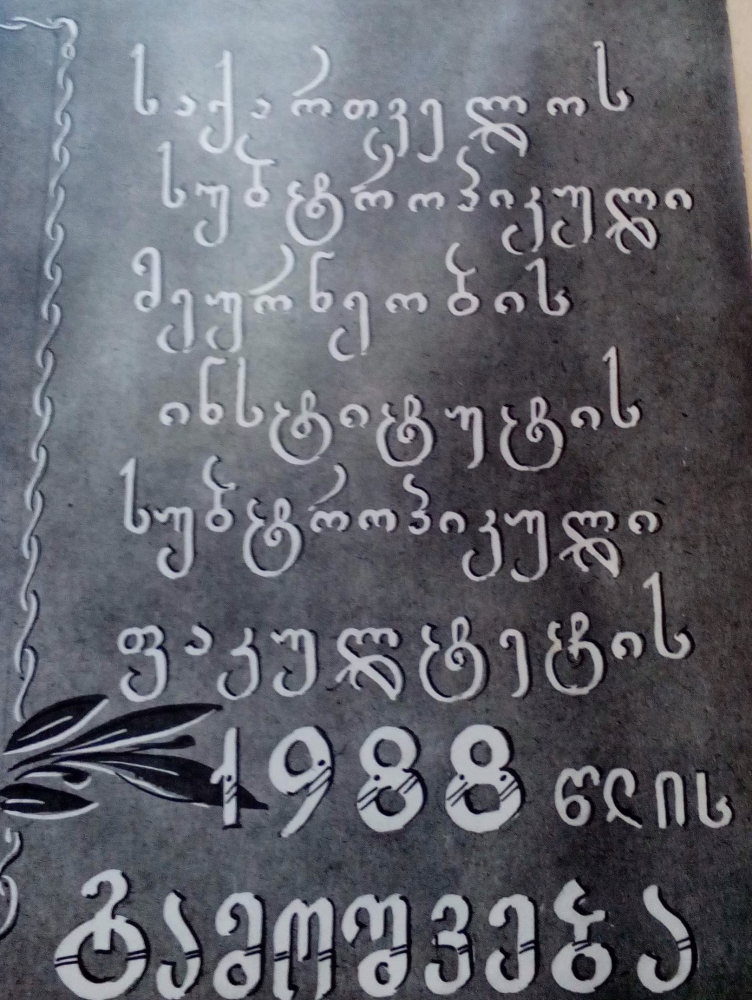 საქართველოს
სუბტროპიკული
მეურნეობის
ინსტიტუტის
სუბტროპიკული
ფაკულტეტის
1988 წლის
გამოშვება